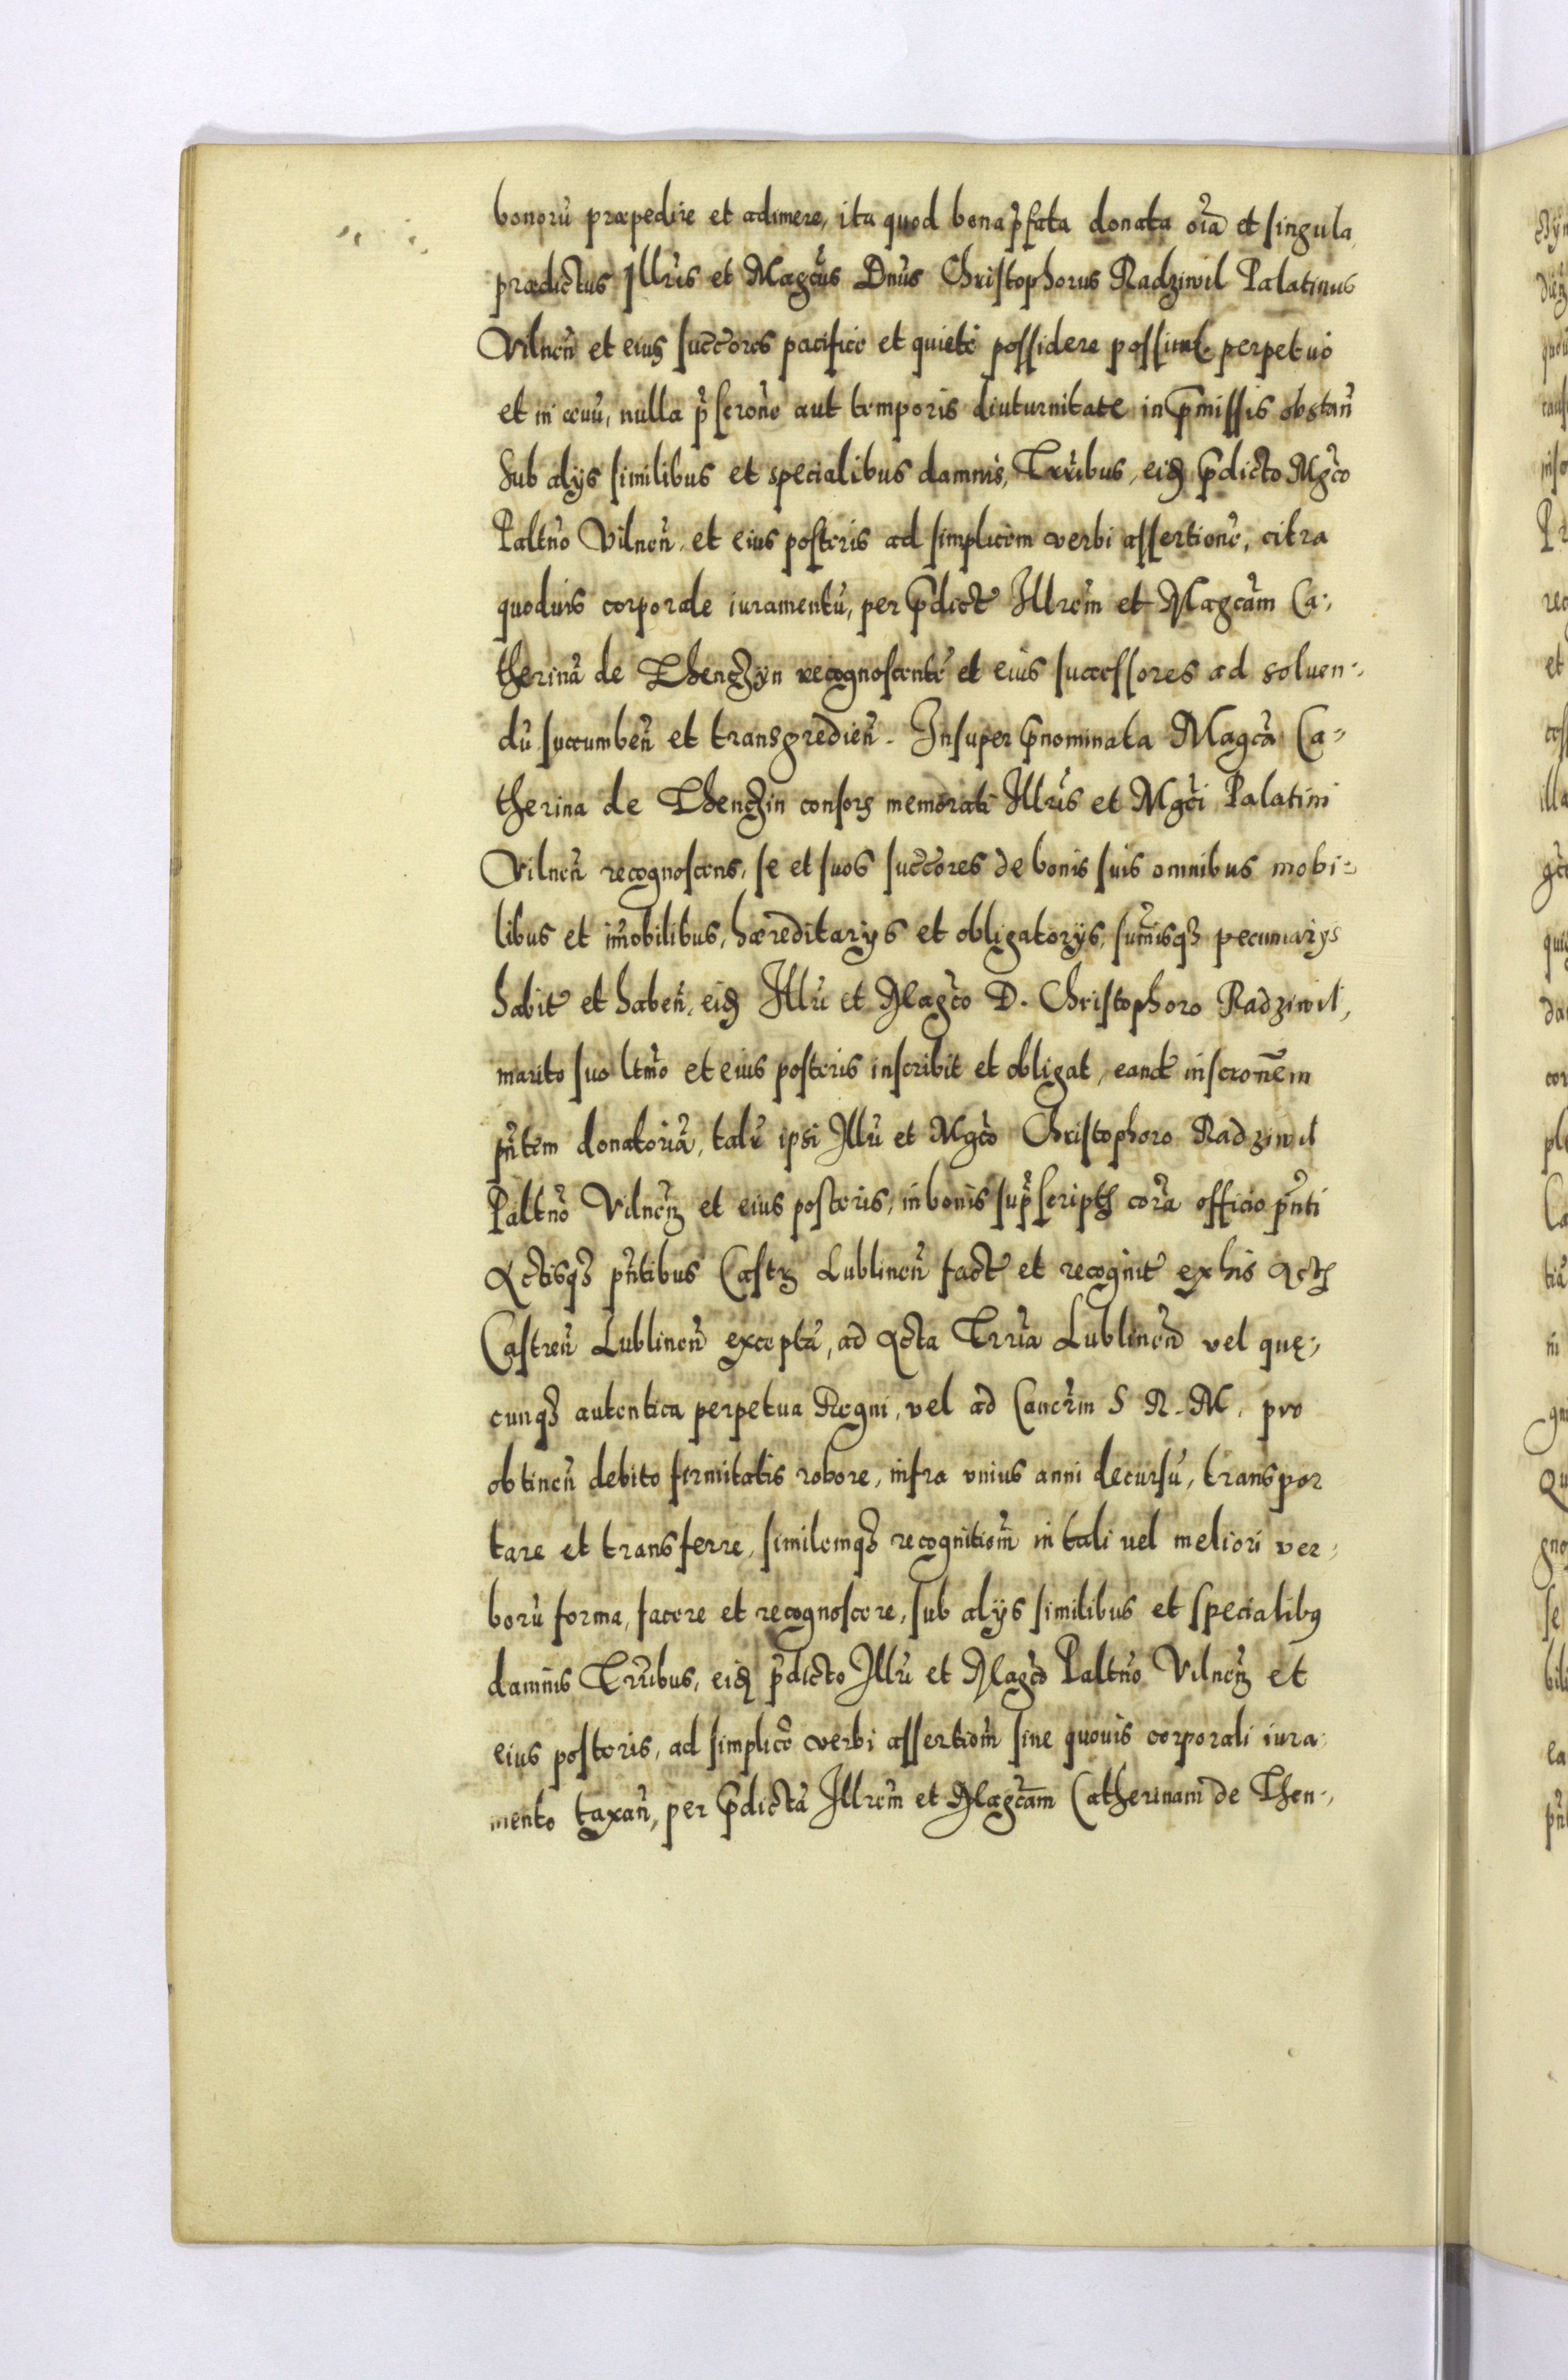 bonorū præpedire et adimere, ita quod bona p̄fata donata oīa et singula,
prædictus Illr̄is et Magc̄us Dnūs Christophorus Radziwil Palatinus
Vilnen̄ et eius succ̄ores pacifice et quiete possidere possint perpetuo
et in œvū, nulla p̄scrōne aut temporis diuturnitate in p̄missis obstan̄
sub alijs similibus et specialibus damnis, Trr̄ibus, eid p̄dicto Mgc̄o
Paltn̄o Vilnen̄, et eius posteris ad simplicem verbi assertionē, citra
quoduis corporale iuramentū, per p̄dict Illrem̄ et Magcām Ca-
therinā de Thenczyn recognoscentē et eius successores ad soluen-
dū succumben̄ et transgredien̄. Insuper p̄nominata Magcā Ca-
therina de Thenczin consors memorati Illrīs et Mgc̄i Palatini
Vilnen̄ recognoscens, se et suos succ̄ores de bonis suis omnibus mobi-
libus et im̄obilibus, hæreditarijs et obligatorijs, sum̄isq₃ pecuniarijs
habit et haben̄, eid Illrī et Magc̄o D. Christophoro Radziwil,
marito suo ltm̄o et eius posteris inscribit et obligat, eand inscronēm
pn̄tem donatoriā, talē ipsi Illrī et Mgc̄o Christophoro Radziwil
Paltnō Vilnen̄ et eius posteris, in bonis sup̄script corā officio pn̄ti
Actisq₃ pn̄tibus Castr Lublinen̄ fact et recognit ex his Act
Castren̄ Lublinen̄ exceptā, ad Acta Trr̄ia Lublinen̄ vel quę-
cunq₃ autentica perpetua Regni, vel ad Cancrīm S R. M. pro
obtinen̄ debito firmitatis robore, infra vnius anni decursū, transpor
tare et transferre, similemq₃ recognitiom̄ in tali uel meliori ver-
borū forma, facere et recognoscere, sub alijs similibus et specialibq
damnis Trr̄ibus, eid p̄dicto Illrī et Magc̄o Paltnō Vilnen̄ et
eius posteris, ad simplicē verbi assertiom̄ sine quouis corporali iura-
mento taxan̄, per p̄dictā Illrem̄ et Magcām Catherinam de Then-